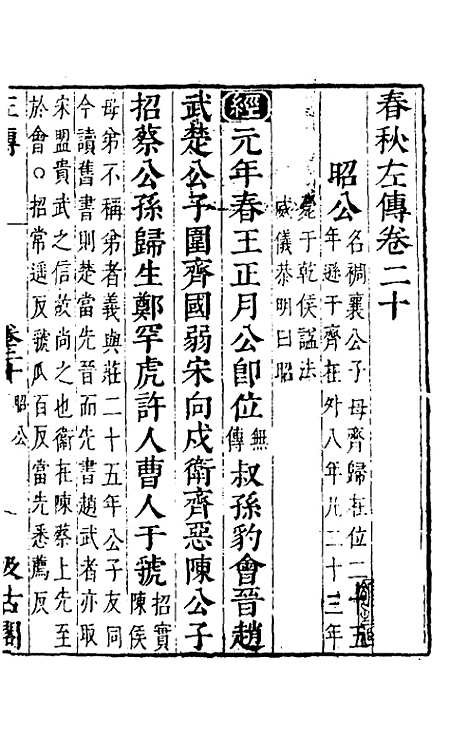 春秋左傳卷二十
昭公
名禂襄公子母齊歸在位二十五
年遜于齊在外八年凡三十三年
薨于乾侯諡法
威儀恭明曰昭
經元年春王正月公卽位無傳叔孫豹會晉趙
武楚公子圍齊國弱宋向戌衛齊惡陳公子
招蔡公孫歸生鄭罕虎許人曹人于虢招實陳侯
母弟不稱弟者義與莊二十五年公子友同
今讀舊書則楚當先晉而先書趙武者亦取
宋盟貴武之信故尚之也衛在陳蔡上先至
於會○招常遥反虢瓜百反當先悉薦反
左傳
卷二十
昭公
一
汲古閣